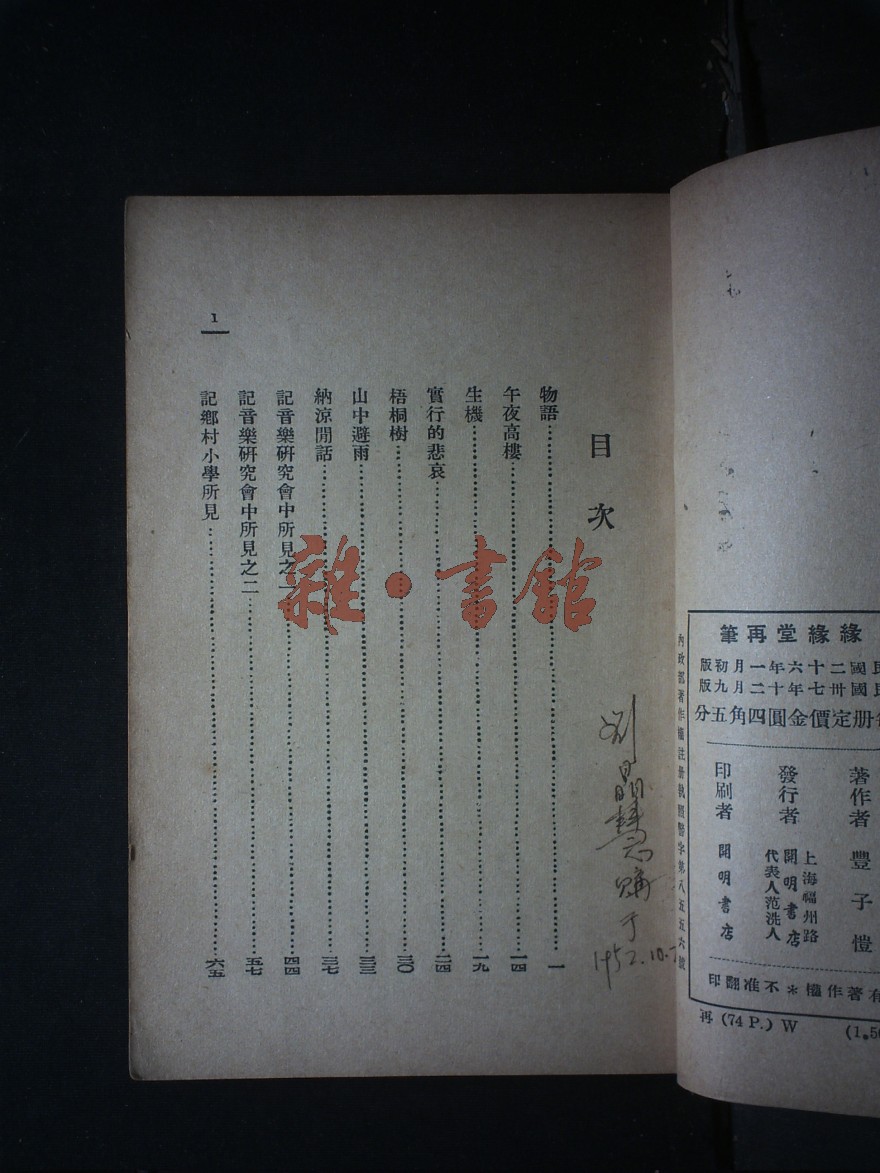 緣緣堂再筆
民國二十六年一月初版
民國卅七年十二月九版
每册定價金圓四角五分
著作者 豐子愷
發行者 上海福州路 開明書店 代表人范洗人
印刷者 開明書店
有著作權＊不准翻印
(1.50
再 (74 P.) W
內政部著作權註册執照警字第八五五六號
目次
物語 一
午夜高樓 一四
生機 一九
實行的悲哀 二四
梧桐樹 三〇
山中避雨 三三
納涼閒話 三七
記音樂研究會中所見之一 四四
記音樂研究會中所見之二 五七
記鄉村小學所見 六五
1
劉晶慧購于
1952.10.
雜·書館